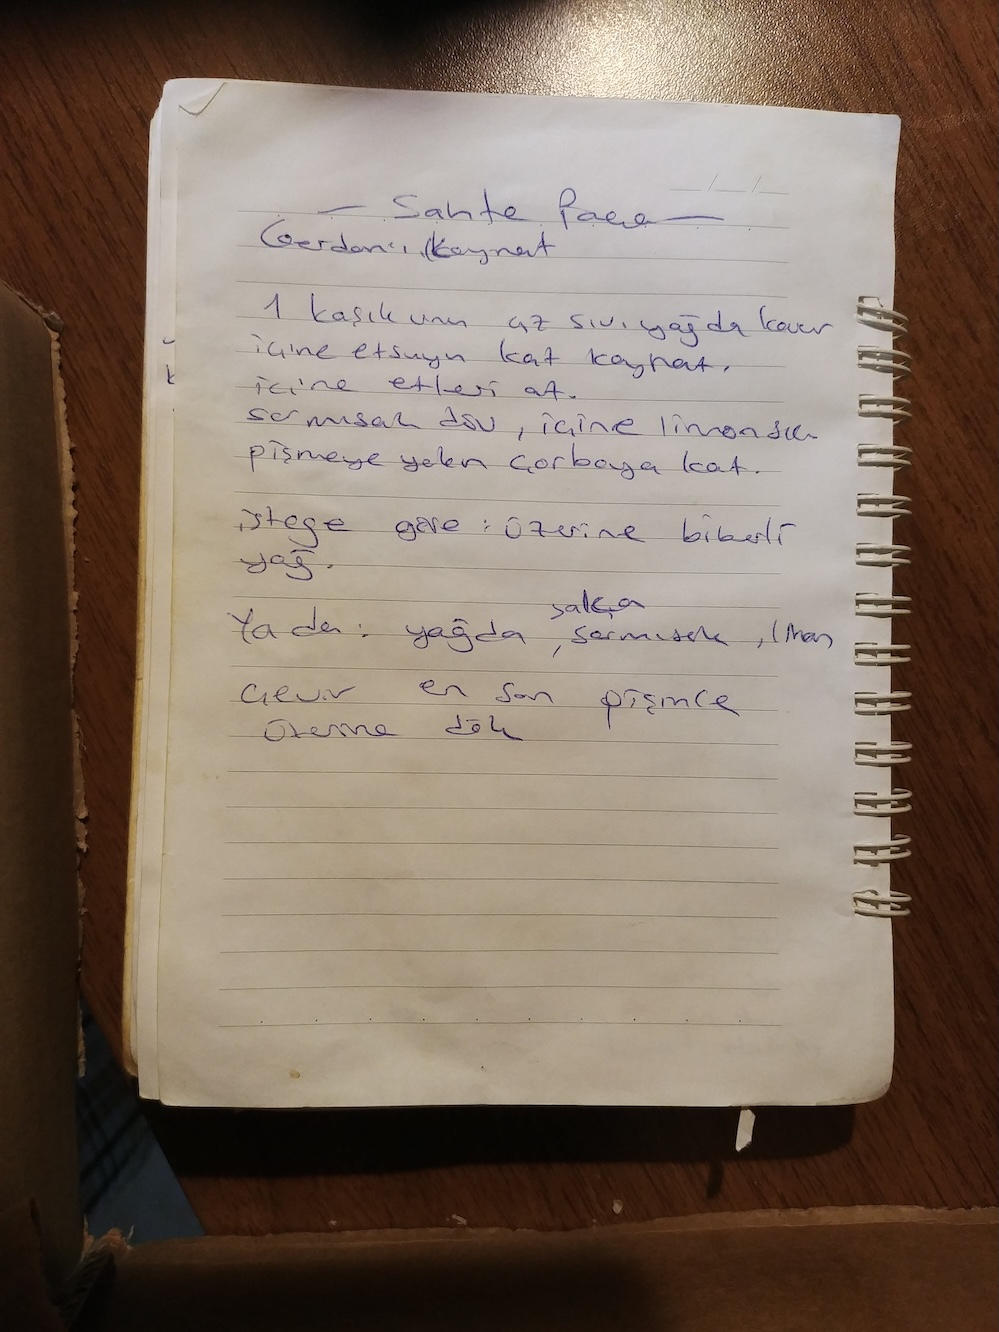 — Sahte Paça —
Gerdanı kaynat
1 kaşık unu az sıvı yağda kavur
içine etsuyu kat kaynat.
içine etleri at.
sarmısak döv, içine limon sık
pişmeye yakın çorbaya kat.
isteğe göre: üzerine biberli
yağ.
salça
Ya da: yağda, sarmısak, liman
çevir en son pişince
üzerine dök